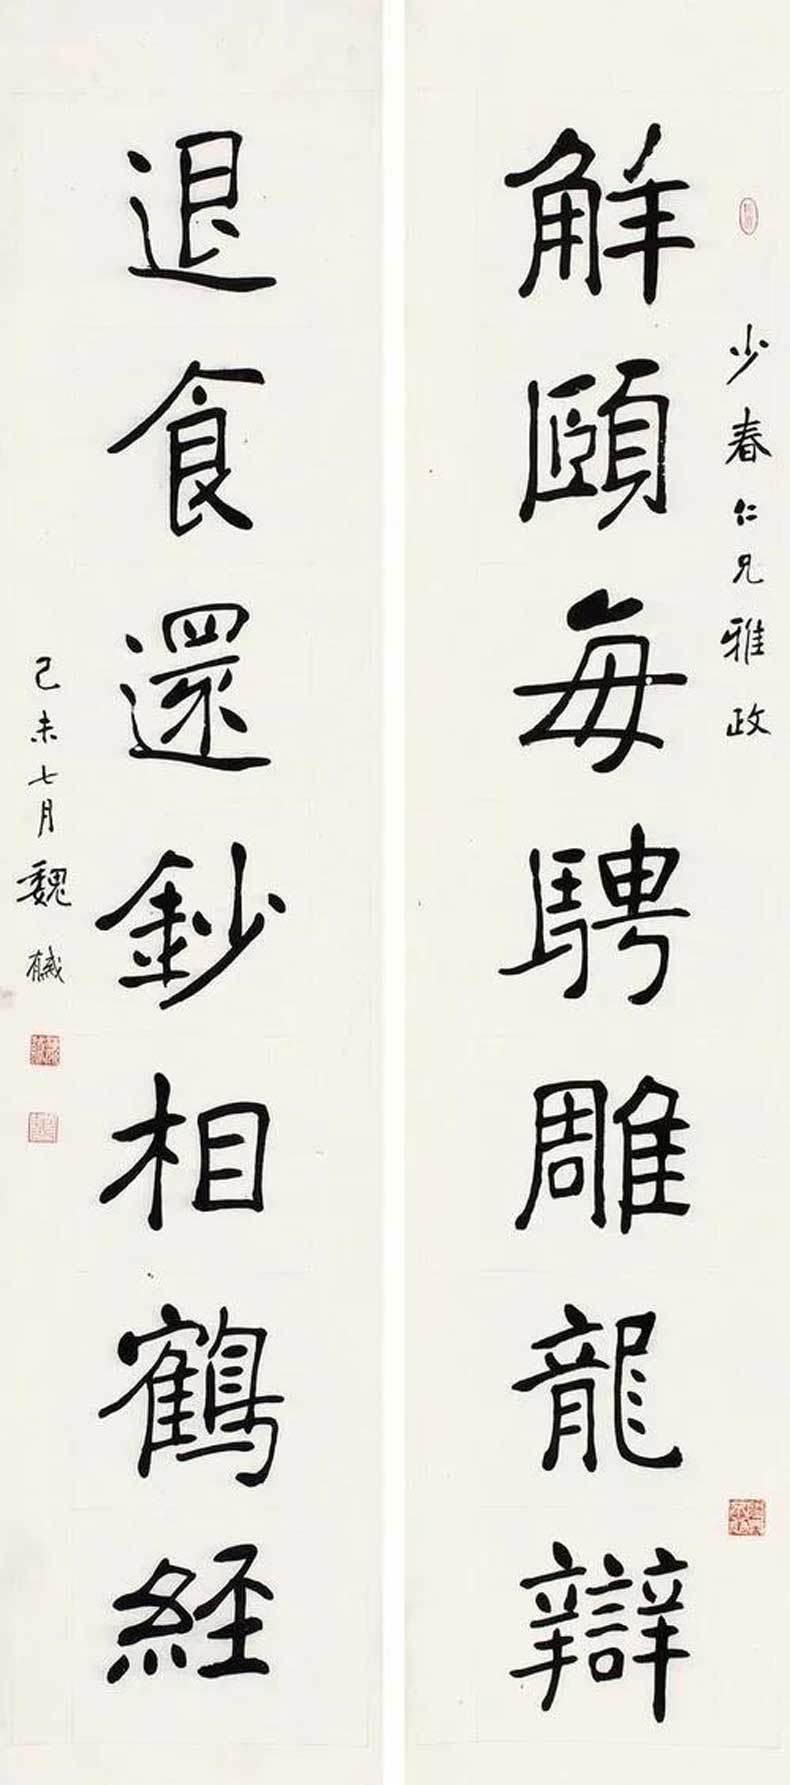 少春仁兄雅政
解頤每騁雕龍辯
退食還鈔相鶴経
己未七月魏戫